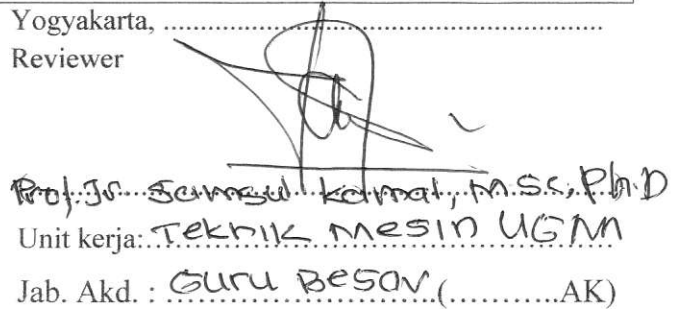 Yogyakarta, ..........................................................
Reviewer
Prof. Ir. Samsul Kamal, M.Sc, Ph.D
Unit kerja: Teknik Mesin UGM
Jab. Akd. : Guru Besar (...........AK)